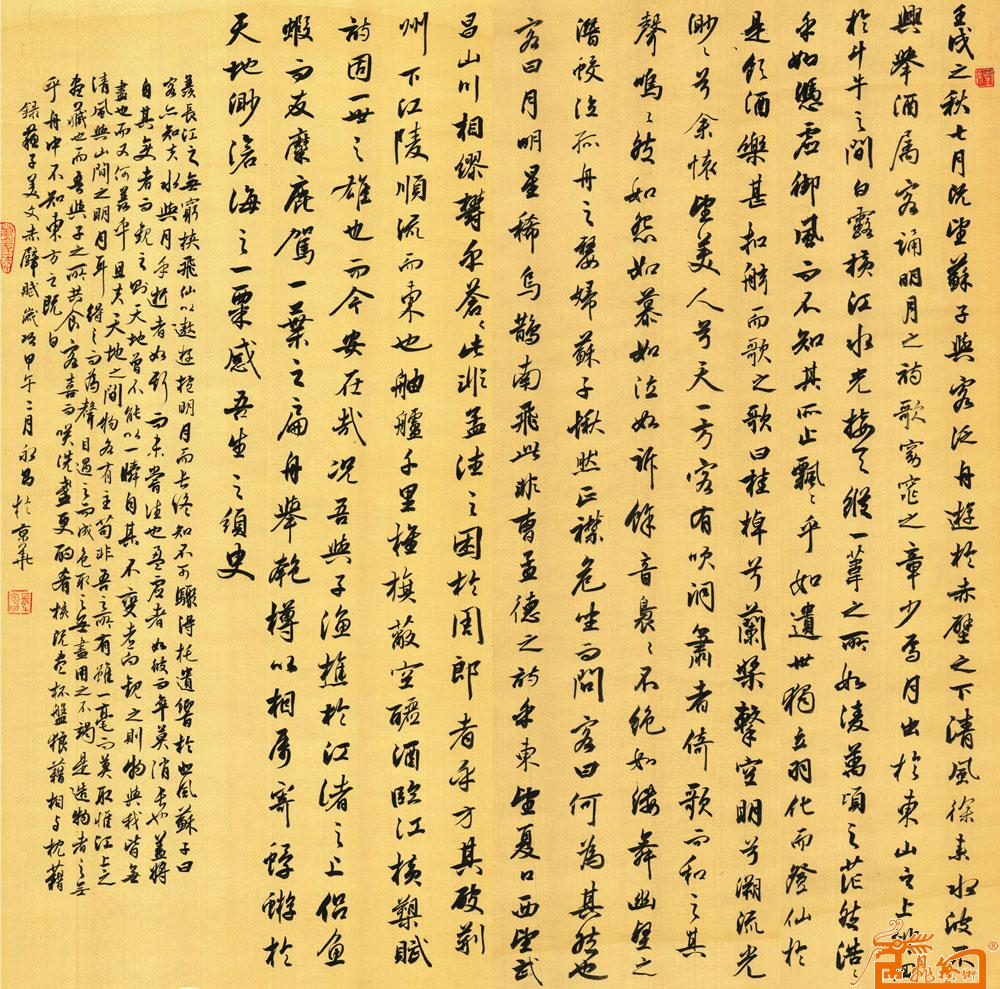 壬戌之秋七月既望蘇子與客泛舟遊於赤壁之下清風徐來水波不
興舉酒屬客誦明月之詩歌窈窕之章少焉月出於東山之上徘徊
於斗牛之間白露橫江水光接天縱一葦之所如凌萬頃之茫然浩〻
乎如憑虛御風而不知其所止飄〻乎如遺世獨立羽化而登仙於
是飲酒樂甚扣舷而歌之歌曰桂棹兮蘭槳擊空明兮溯流光
渺〻兮余懷望美人兮天一方客有吹洞簫者倚歌而和之其
聲嗚〻然如怨如慕如泣如訴餘音裊〻不絕如縷舞幽壑之
潛蛟泣孤舟之嫠婦蘇子愀然正襟危坐而問客曰何為其然也
客曰月明星稀烏鵲南飛此非曹孟德之詩乎東望夏口西望武
昌山川相繆鬱乎蒼〻此非孟德之困於周郎者乎方其破荊
州下江陵順流而東也舳艫千里旌旗蔽空釃酒臨江橫槊賦
詩固一世之雄也而今安在哉況吾與子漁樵於江渚之上侶魚
蝦而友麋鹿駕一葉之扁舟舉匏樽以相屬寄蜉蝣於
天地渺滄海之一粟感吾生之須臾
羨長江之無窮挾飛仙以遨遊抱明月而長終知不可驟得托遺響於悲風蘇子曰
客亦知夫水與月乎逝者如斯而未嘗往也盈虛者如彼而卒莫消長也蓋將
自其變者而觀之則天地曾不能以一瞬自其不變者而觀之則物與我皆無
盡也而又何羨乎且夫天地之間物各有主苟非吾之所有雖一毫而莫取惟江上之
清風與山間之明月耳得之而為聲目遇之而成色取之無盡用之不竭是造物者之無
盡藏也而吾與子之所共食客喜而笑洗盞更酌肴核既盡杯盤狼藉相與枕藉
乎舟中不知東方之既白
錄蘇子美文赤壁賦歲次甲午二月永昌於京華